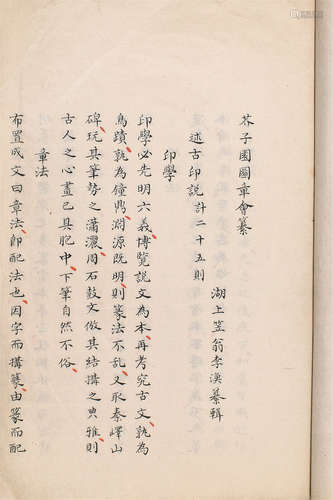 芥子園圖章會纂
述古印說計二十五則
湖上笠翁李漁纂輯
印學
印學必先明六義博覽說文為本再考究古文孰為
鳥蹟孰為鐘鼎淵源既明則篆法不亂又取秦嶧山
碑玩其筆勢之瀟灑用石鼓文倣其結搆之典雅則
古人之心畫已具胸中下筆自然不俗
章法
布置成文曰章法卽配法也因字而搆篆由篆而配